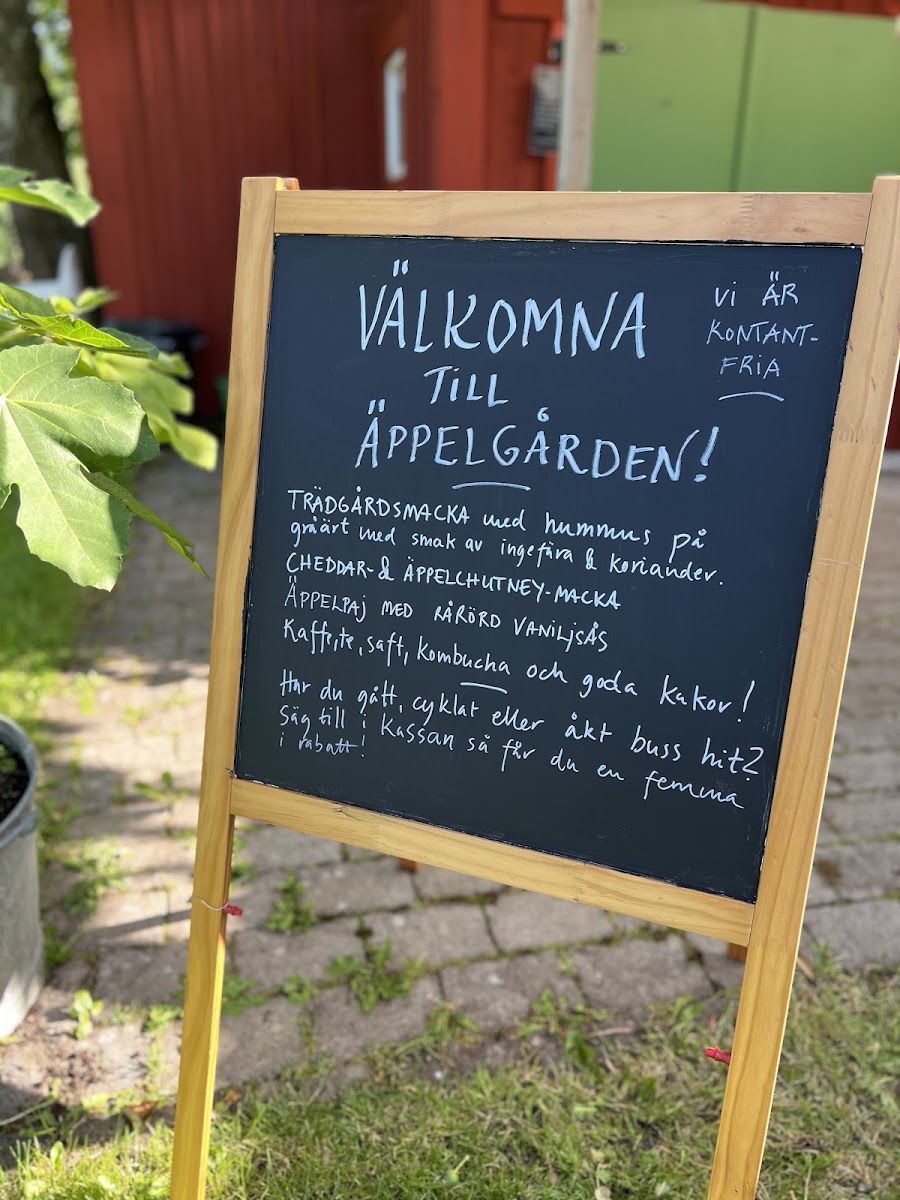 VÄLKOMNA
TILL
ÄPPELGÅRDEN!
Vi ÄR
KONTANT-
FRiA
TRÄDGÅRDSMACKA med hummus på
gråärt med smak av ingefära & koriander.
CHEDDAR- & ÄPPELCHUTNEY-MACKA
ÄPPELPAJ MED RÅRÖRD VANILJSÅS
Kaffe, te, saft, kombucha och goda kakor!
Har du gått, cyklat eller åkt buss hit?
Säg till i kassan så får du en femma
i rabatt!